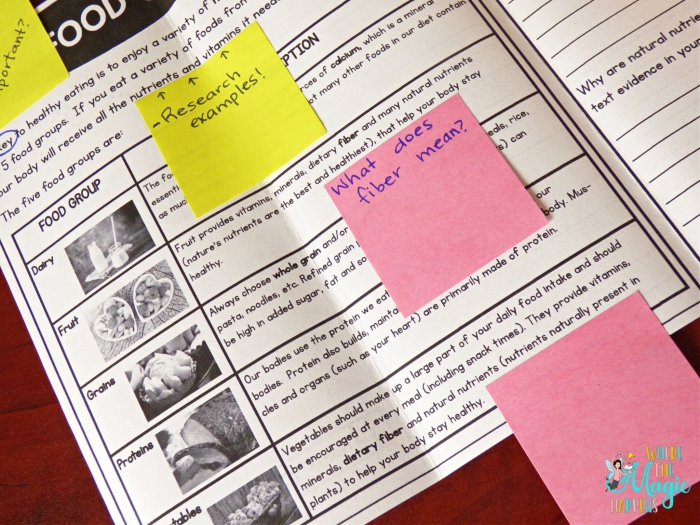 FOOD
portant?
key to healthy eating is to enjoy a variety of
5 food groups. If you eat a variety of foods from
our body will receive all the nutrients and vitamins it
The five food groups are:
↑ ↑ ↑
-Research
examples!
What does
fiber mean?
FOOD GROUP
PTION
Dairy
The foo
rces of calcium, which is a mineral
essenti
ot many other foods in our diet contain
as muc
Fruit
Fruit provides vitamins, minerals, dietary fiber and many natural nutrients
(nature's nutrients are the best and healthiest), that help your body stay
healthy.
Grains
Always choose whole grain and/or
eads, rice,
pasta, noodles, etc. Refined grain
s) can
be high in added sugar, fat and so
Proteins
Our bodies use the protein we eat
our
bodies. Protein also builds, mainta
body. Mus-
cles and organs (such as your heart) are primarily made of protein.
tables
Vegetables should make up a large part of your daily food intake and should
be encouraged at every meal (including snack times). They provide vitamins,
minerals, dietary fiber and natural nutrients (nutrients naturally present in
plants) to help your body stay healthy.
Why are natural nutri
text evidence in you
WHERE
THE
Magic
HAPPENS